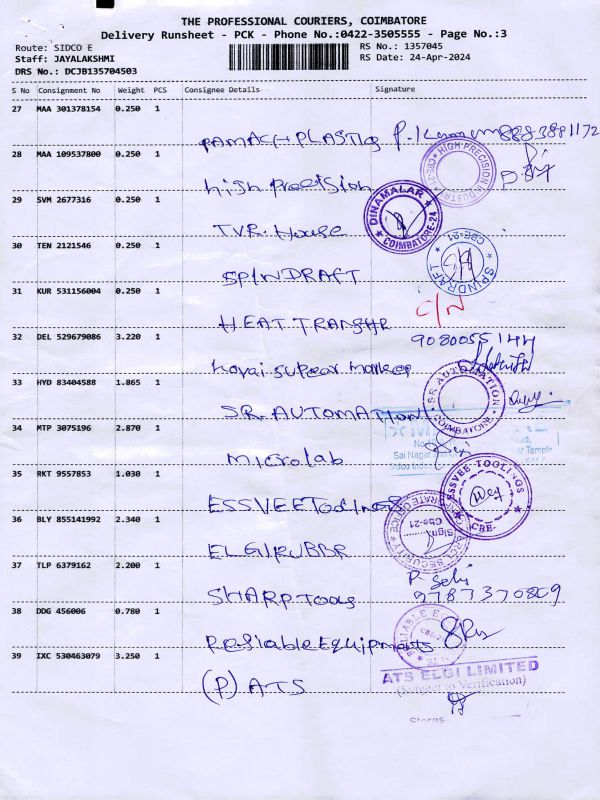 THE PROFESSIONAL COURIERS, COIMBATORE
Delivery Runsheet - PCK - Phone No.:0422-3505555 - Page No.:3
Route: SIDCO E
RS No.: 1357045
Staff: JAYALAKSHMI
RS Date: 24-Apr-2024
DRS No.: DCJB135704503
S No Consignment No Weight PCS Consignee Details Signature
27 MAA 301378154 0.250 1
PAMACH PLASTIC
28 MAA 109537800 0.250 1
HIGH PRECISION INDUSTRI
high precision
29 SVM 2677316 0.250 1
DINAMALAR
COIMBATORE-24
TVR. House
30 TEN 2121546 0.250 1
CBE-21
SPINDRAFT
SPINDRAFT
31 KUR 531156004 0.250 1
C/N
HEAT TRANSHR
32 DEL 529679086 3.220 1
9080055144
Kovai supear market
33 HYD 83404588 1.865 1
S.R. AUTOMATION
COIMBATORE
S.R. AUTOMATION
34 MTP 3075196 2.870 1
Sai Nagar
Temple
Sidco Indus
microlab
35 RKT 9557853 1.030 1
ESSVEE TOOLINGS
CBE-
ESSVEE Toolings
36 BLY 855141992 2.340 1
Sign
Cbe-21
SECURITY
ELGIRUBBR
37 TLP 6379162 2.200 1
P. Selvi
9787370809
SHARP Tools
38 DDG 456006 0.780 1
Resliable Equipments
39 IXC 530463079 3.250 1
ATS ELGI LIMITED
(Subject to Verification)
(P) ATS
Stores